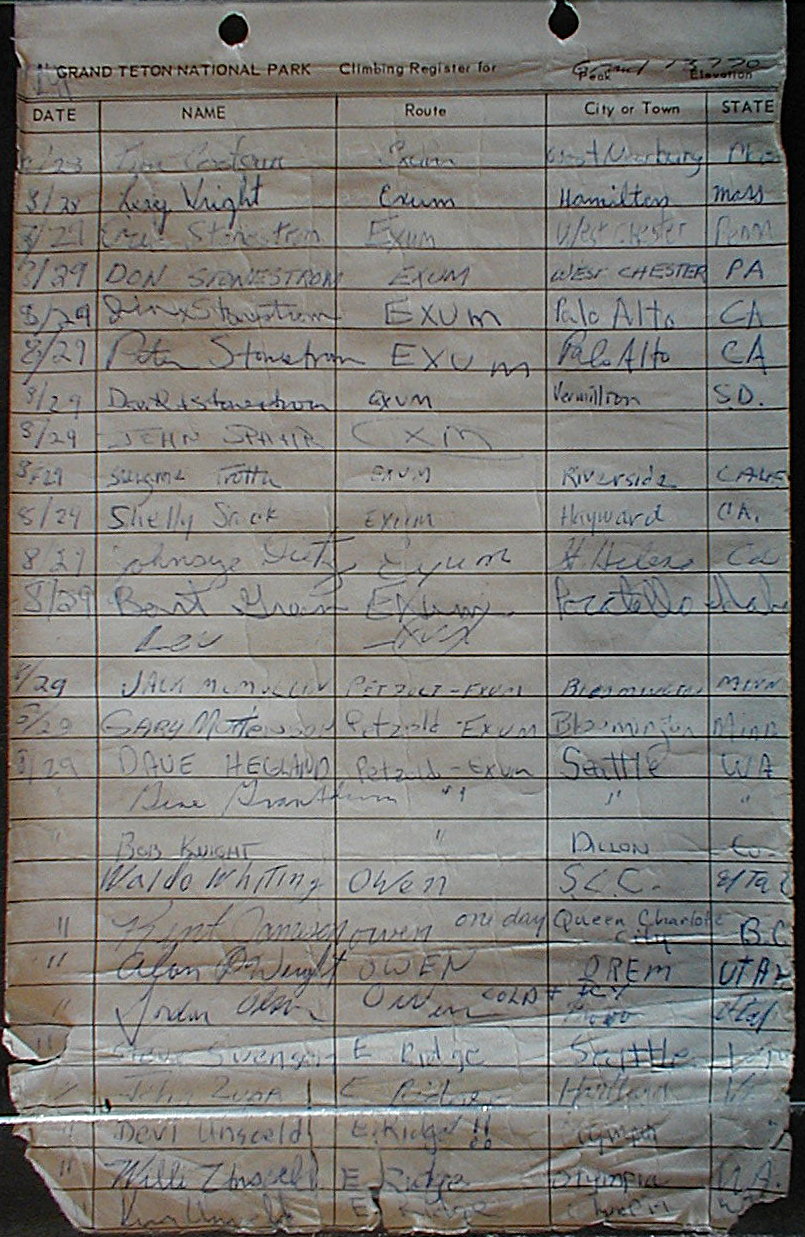 GRAND TETON NATIONAL PARK Climbing Register for Grand 13,770
Peak Elevation
DATE NAME Route City or Town STATE
/28 Exum West Newbury
8/28 Wright Exum Hamilton Mass
8/29 Stonestrom Exum West Chester Penn
8/29 DON STONESTROM EXUM WEST CHESTER PA
8/29 Stonestrom EXUM Palo Alto CA
8/29 Peter Stonestrom EXUM Palo Alto CA
8/29 David Stonestrom EXUM Vermillion S.D.
8/29 JOHN SPAHR Exum
8/29 Trotta EXUM Riverside CALIF
8/29 Shelly EXUM Hayward CA.
8/29 Exum St. Helena Ca
8/29 Exum Pocatello Idaho
Exum
/29 JACK MCMULLEN PETZOLT-EXUM BLOOMINGTON MINN
8/29 GARY Petzold-EXUM Bloomington Minn
8/29 DAVE HEGLAND Petzold-Exum Seattle WA
" Gene " " " "
" BOB KNIGHT " DILLON Co.
Waldo Whiting Owen S.L.C. Utah
" owen one day Queen Charlotte City B.C
" Alan Wright OWEN OREM UTAH
" Olson Owen COLD + ICY Provo Utah
" Steve E Ridge Seattle
" John E Ridge
" Devi Unsoeld E. Ridge !! Olympia "
" Willi Unsoeld E Ridge Olympia WA.
Unsoeld E. Ridge Olympia